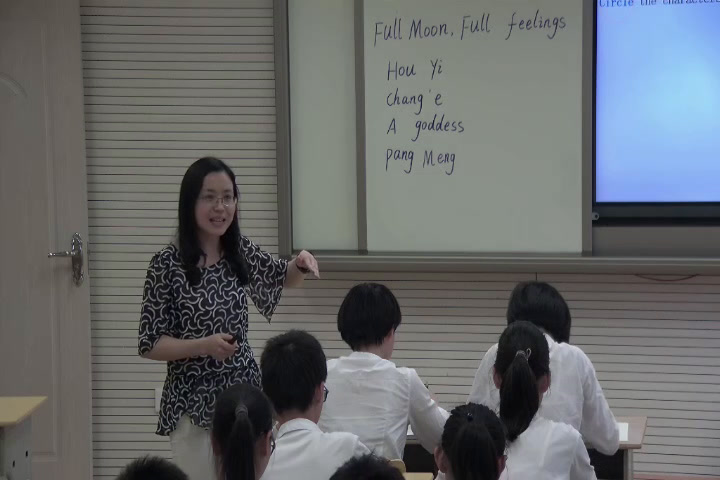 Full Moon, Full feelings
Hou Yi
Chang'e
A goddess
Pang Meng
Circle the characters